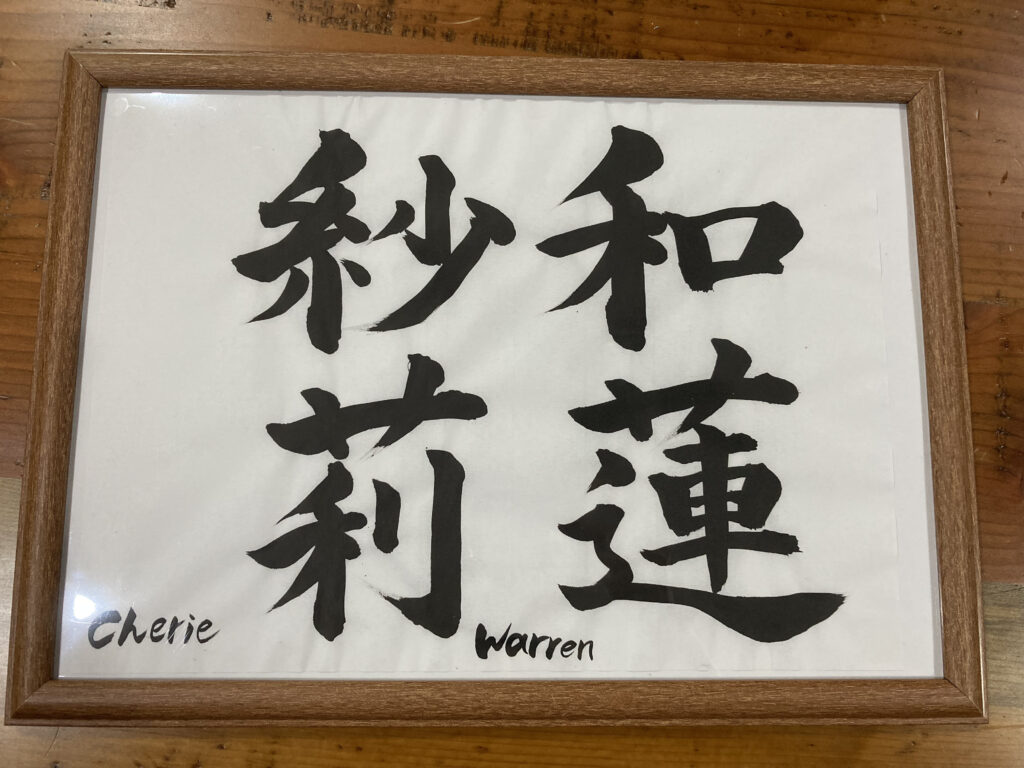 和蓮
Warren
紗莉
Cherie